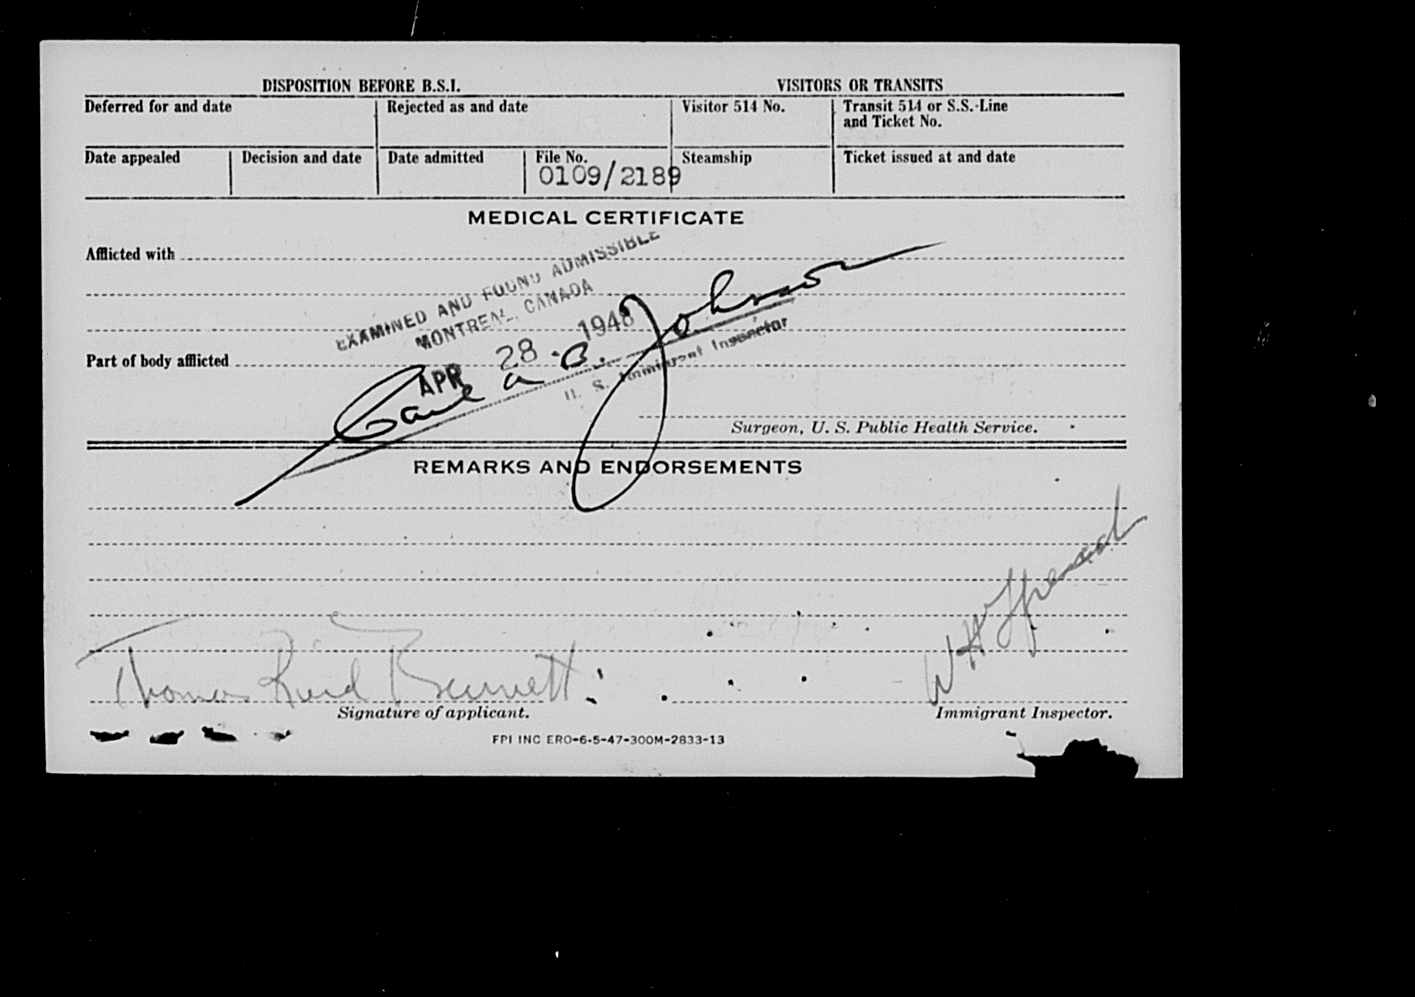 DISPOSITION BEFORE B.S.I. VISITORS OR TRANSITS
Deferred for and date Rejected as and date Visitor 514 No. Transit 514 or S.S.-Line
and Ticket No.
Date appealed Decision and date Date admitted File No. Steamship Ticket issued at and date
0109/2189
MEDICAL CERTIFICATE
Afflicted with
EXAMINED AND FOUND ADMISSIBLE
MONTREAL, CANADA
APR 28 1948
Part of body afflicted
B. Johnson
U. S. Immigrant Inspector
Surgeon, U. S. Public Health Service.
REMARKS AND ENDORSEMENTS
Thomas Reid Bennett
W H
Signature of applicant. Immigrant Inspector.
FPI INC ERO-6-5-47-300M-2833-13